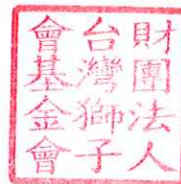 財團法人
台灣獅子
會基金會